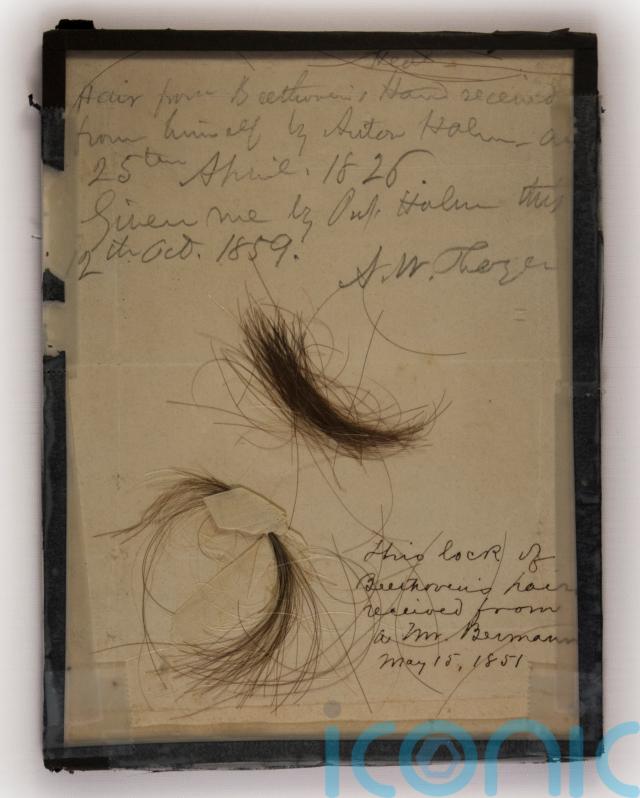 Head
Hair from Beethoven's Head received
from himself by Anton Halm - on
25ten April. 1826
Given me by Prof. Halm this
12th Oct. 1859.
A. W. Thayer
this lock of
Beethoven's hair
received from
a Mr. Bermann
May 15, 1851
iconic